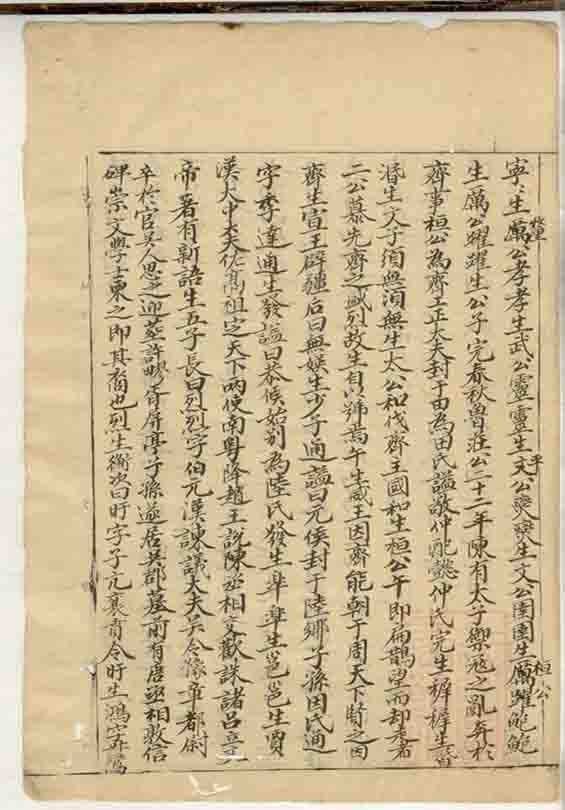 寧寧生厲公孝孝生武公靈靈生文公奕奕生文公圉圉生厲躍鮑鮑
生厲公躍躍生公子完春秋魯莊公二十二年陳有太子禦寇之亂奔於
齊事桓公為齊工正大夫封于田為田氏謚敬仲配懿仲氏完生穉穉生湣
湣生文子須無須無生太公和伐齊主國和生桓公午即扁鵲望而却走者
二公慕先齊之盛烈故生自以號焉午生威王因齊能朝于周天下賢之因
齊生宣王辟疆后曰無娛生少子通謚曰元侯封于陸鄉子孫因氏通
字季達通生發謚曰恭侯始別為陸氏發生臯臯生邕邕生賈
漢大中大夫佐高祖定天下兩使南粵降趙王說陳丞相交歡誅諸呂立文
帝著有新語生五子長曰烈烈字伯元漢諫議大夫吳令豫章都尉
卒於官吳人思之迎葬許胥屏亭子孫遂居吳郡墓前有唐丞相敦信
碑崇文學士柬之即其裔也烈生衡次曰盱字子元襄賁令盱生鴻